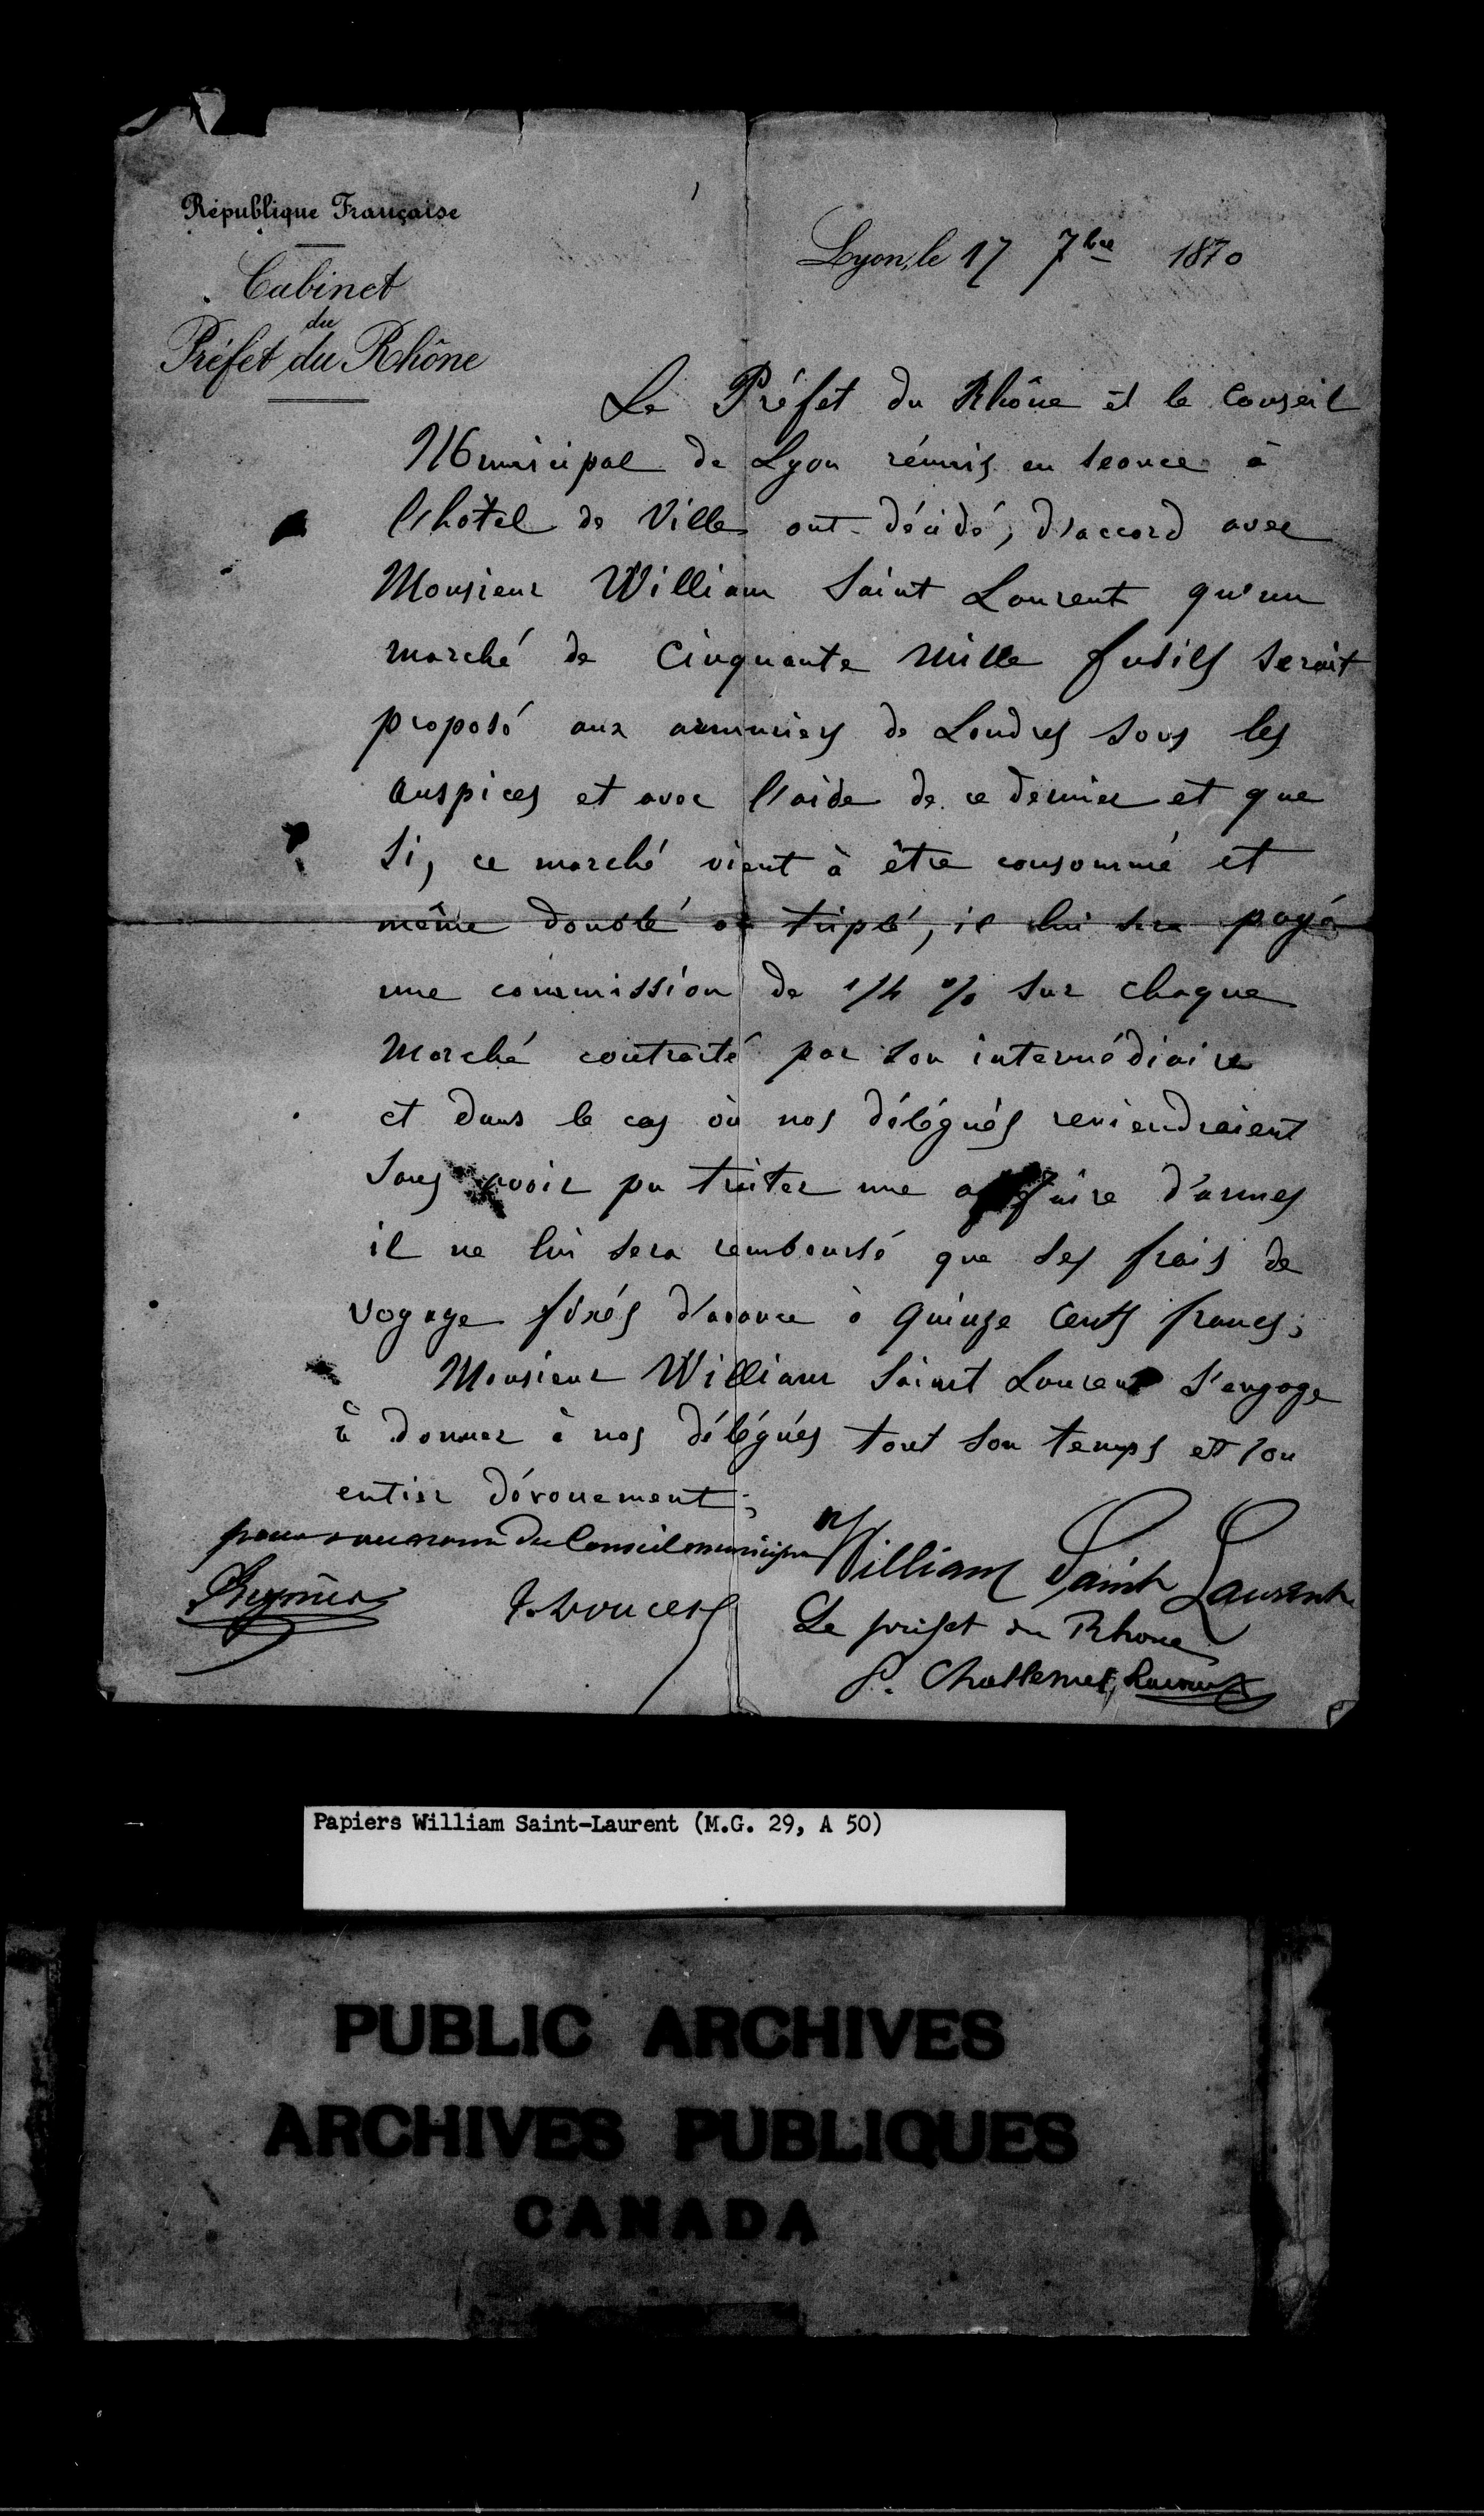 République Française
Cabinet
du
Préfet du Rhône
Lyon, le 17 7bre 1870
Le Préfet du Rhône et le Conseil
Municipal de Lyon réunis en seance à
l'hôtel de Ville ont décidé, d'accord avec
Monsieur William Saint Laurent qu'un
marché de Cinquante mille fusils serait
proposé aux armuriers de Londres sous les
auspices et avec l'aide de ce dernier et que
si, ce marché vient à être consommé et
même doublé ou triplé, il lui sera payé
une commission de 1/4 % sur chaque
Marché contracté par son intermédiaire
et dans le cas où nos délégués reviendraient
sans avoir pu traiter une affaire d'armes
il ne lui sera remboursé que ses frais de
voyage fixés d'avance à quinze cents francs;
Monsieur William Saint Laurent s'engage
à donner à nos délégués tout son temps et son
entier dévouement;
pour & au nom du Conseil municipal
William Saint Laurent
Le préfet du Rhône
P. Challemel Lacour
Papiers William Saint-Laurent (M.G. 29, A 50)
PUBLIC ARCHIVES
ARCHIVES PUBLIQUES
CANADA